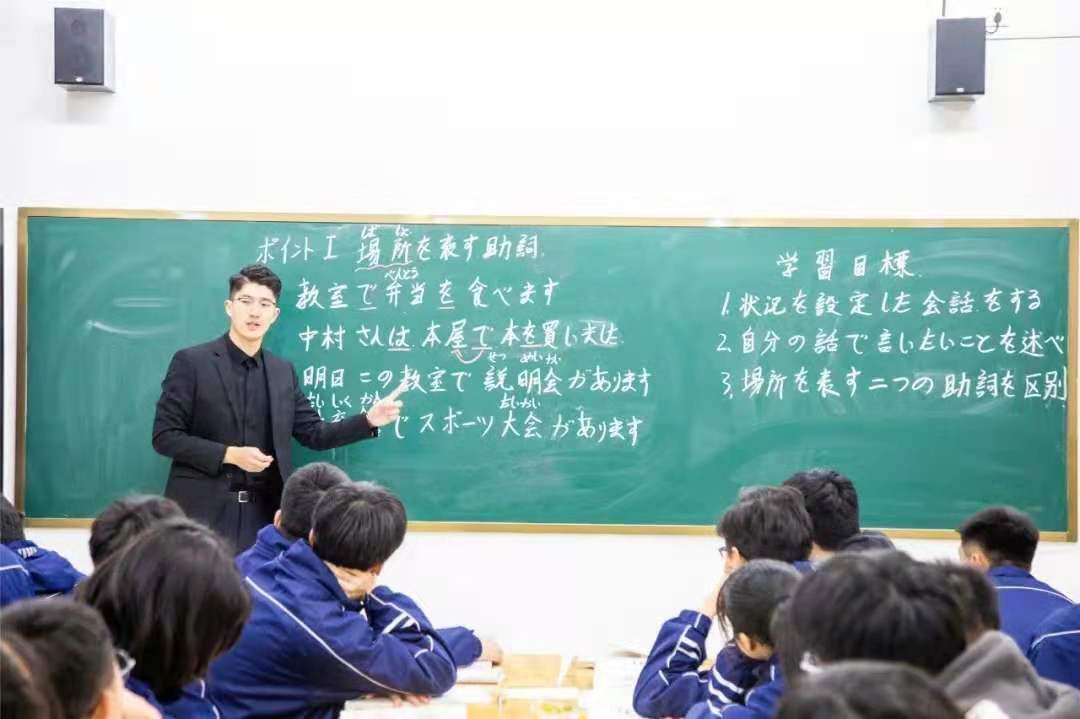 ば しょ
ポイントI 場所を表す助詞.
べんとう
教室で弁当を食べます
中村さんは本屋で本を買いました
せつ めい かい
明日この教室で説明会があります
いく かん たいかい
でスポーツ大会があります
学習目標.
1.状況を設定した会話をする
2.自分の話で言いたいことを述べ
3.場所を表す二つの助詞を区別